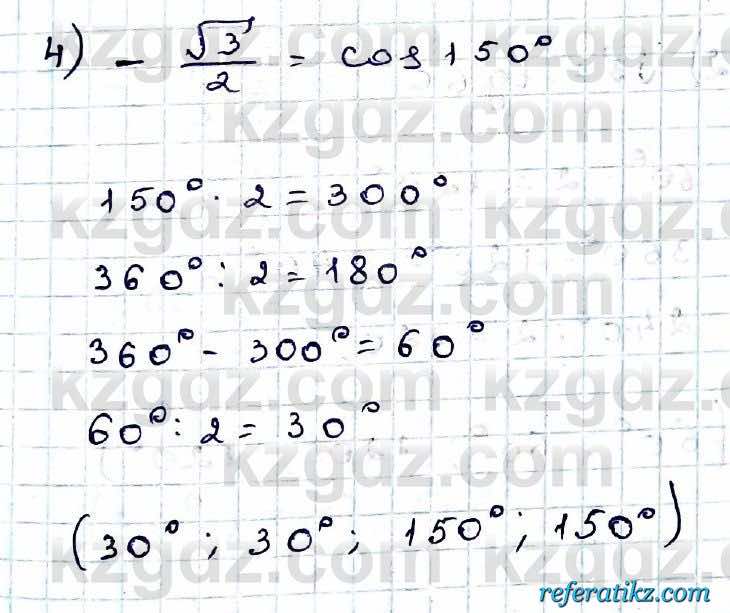 4) - √3/2 = cos 150°
150° · 2 = 300°
360° : 2 = 180°
360° - 300° = 60°
60° : 2 = 30°
(30° ; 30° ; 150° ; 150°)
kzgdz.com
referatikz.com